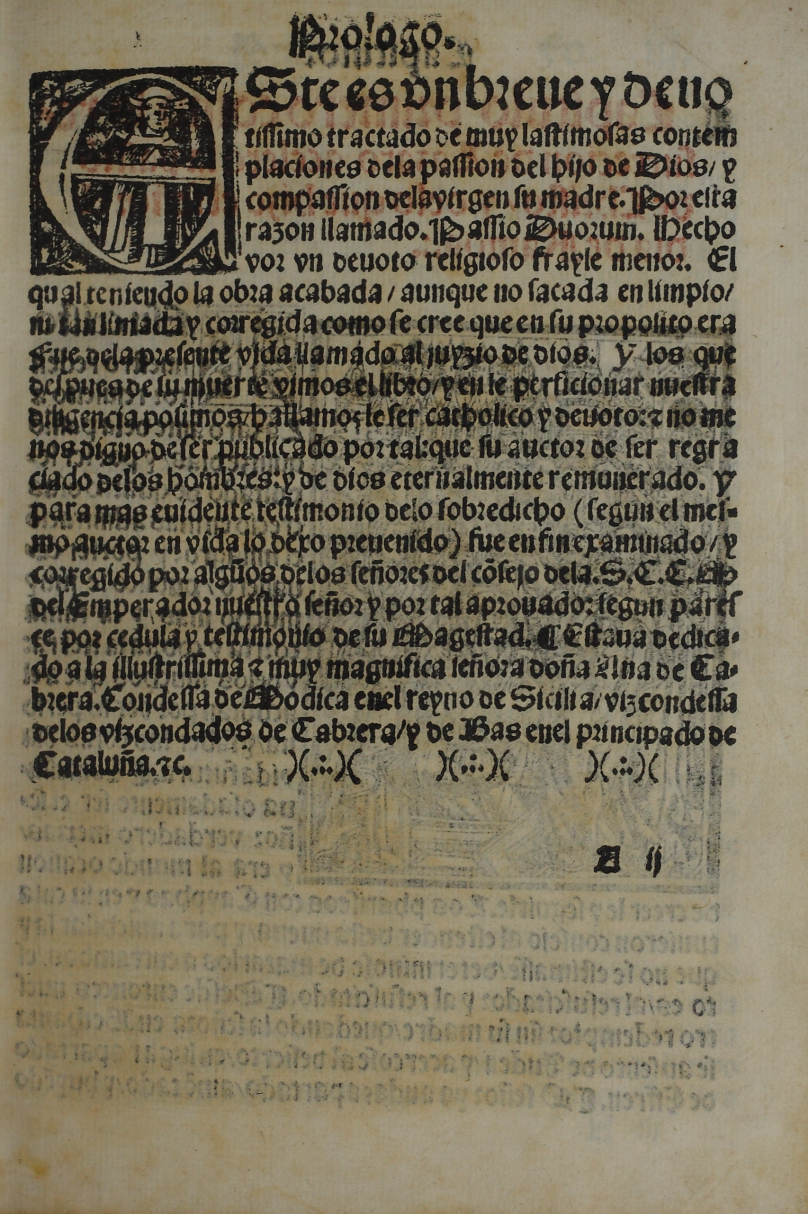 Prologo.
ESte es vn breue y deuo
tissimo tractado de muy lastimosas contem
placiones dela passion del hijo de Dios/ y
compassion dela virgen su madre. Por esta
razon llamado. Passio Duorum. Hecho
por vn deuoto religioso frayle menor. El
qual teniendo la obra acabada/ aunque no sacada en limpio/
ni tan limada y corregida como se cree que en su proposito era
fue dela presente vida llamado al juyzio de dios. Y los que
despues de su muerte vimos el libro/ y en le perficionar nuestra
diligencia posimos hallamosle ser catholico y deuoto: ⁊ no me
nos digno de ser publicado por tal: que su auctor de ser regra
ciado delos hombres: y de dios eternalmente remunerado. Y
para mas euidente testimonio delo sobredicho (segun el mes-
mo auctor en vida lo dexo preuenido) fue en fin examinado/ y
corregido por algũos delos señores del cõsejo dela. S. C. C. M
del Emperador nuestro señor y por tal aprouado: segun pares
ce por cedula y testimonio de su Magestad. ¶ Estaua dedica-
do a la illustrissima ⁊ muy magnifica señora doña Ana de Ca-
brera. Condessa de Modica enel reyno de Sicilia/ vizcondessa
delos vizcondados de Cabrera/ y de Bas enel principado de
Cataluña. ⁊c. )(.∴.)( )(.∴.)( )(.∴.)(
A ij